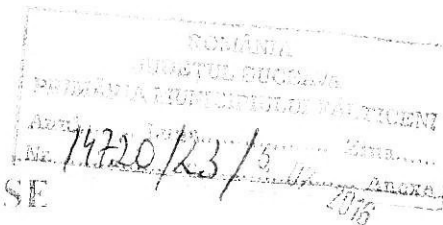 ROMÂNIA
JUDEȚUL SUCEAVA
PRIMĂRIA MUNICIPIULUI FĂLTICENI
Anul...... Luna............ Ziua......
Nr. 14720/23/5 Anexa
2016
SE